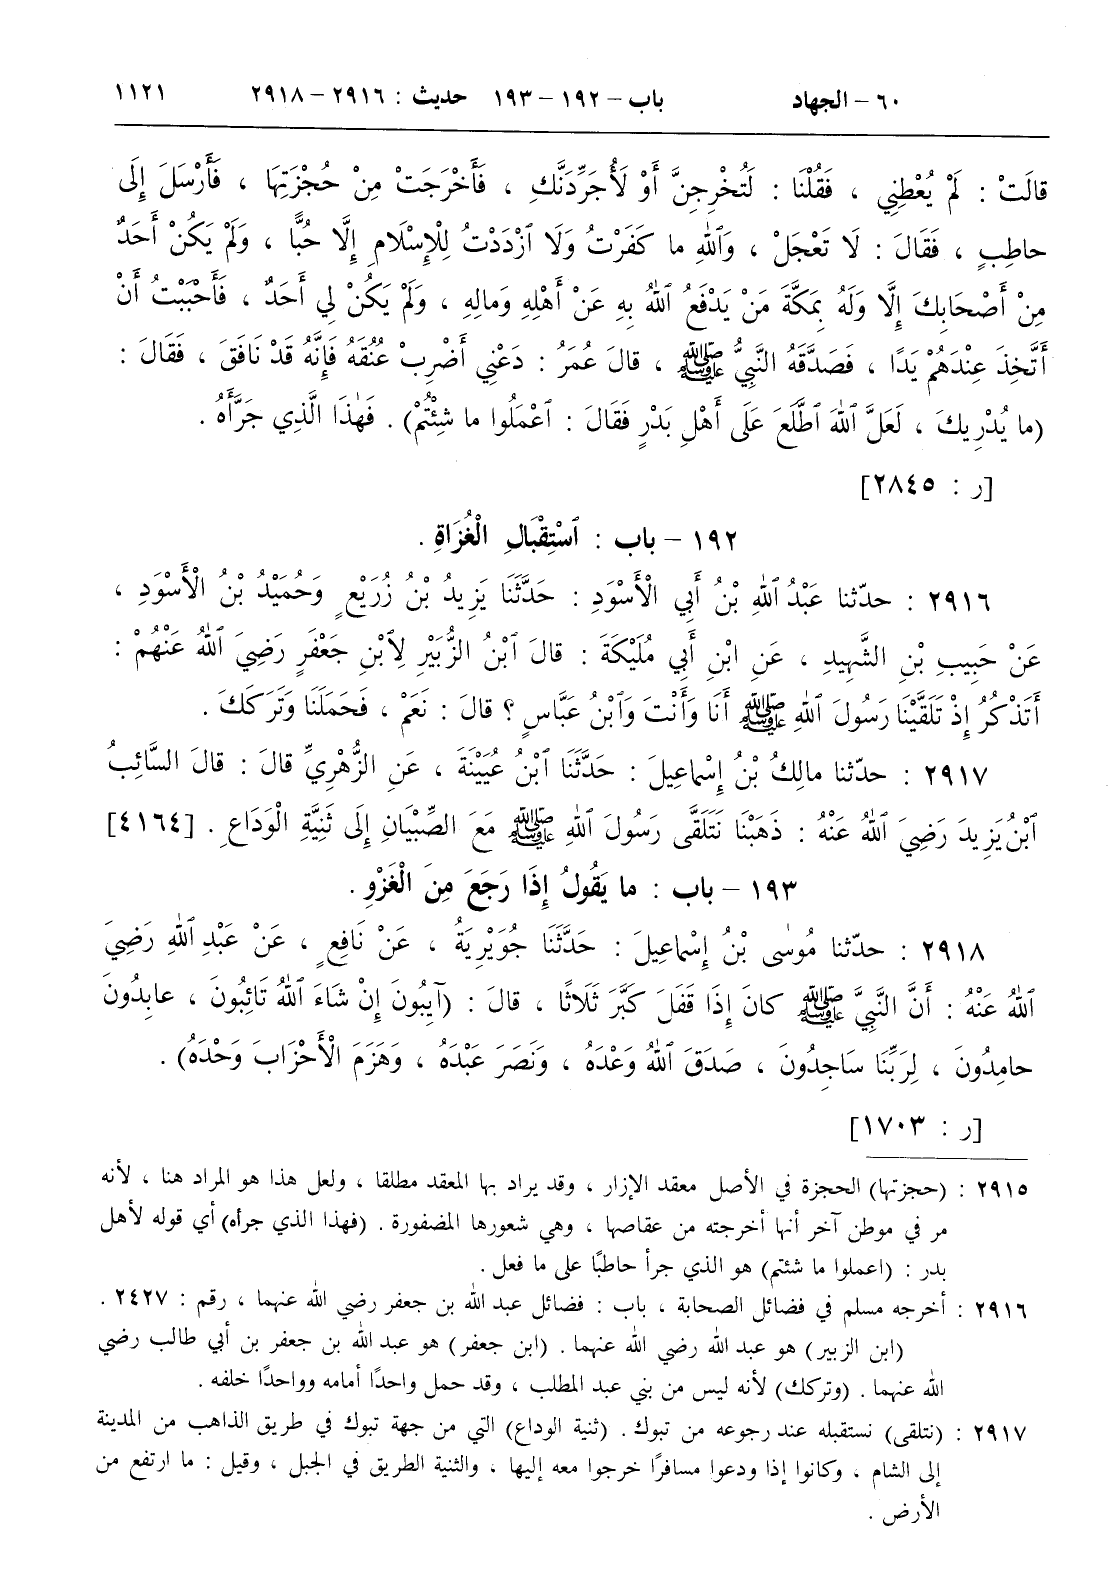 ٦٠ – الجهاد باب – ١٩٢ – ١٩٣ حديث : ٢٩١٦ – ٢٩١٨ ١١٢١
قالَتْ : لَمْ يُعْطِنِي ، فَقُلْنَا : لَتُخْرِجِنَّ أَوْ لَأُجَرِّدَنَّكِ ، فَأَخْرَجَتْ مِنْ حُجْزَتِهَا ، فَأَرْسَلَ إِلَى
حاطِبٍ ، فَقَالَ : لَا تَعْجَلْ ، وَٱللهِ ما كَفَرْتُ وَلَا ٱزْدَدْتُ لِلْإِسْلَامِ إِلَّا حُبًّا ، وَلَمْ يَكُنْ أَحَدٌ
مِنْ أَصْحَابِكَ إِلَّا وَلَهُ بِمَكَّةَ مَنْ يَدْفَعُ ٱللهُ بِهِ عَنْ أَهْلِهِ وَمالِهِ ، وَلَمْ يَكُنْ لِي أَحَدٌ ، فَأَحْبَبْتُ أَنْ
أَتَّخِذَ عِنْدَهُمْ يَدًا ، فَصَدَّقَهُ النَّبِيُّ ﷺ ، قالَ عُمَرُ : دَعْنِي أَضْرِبْ عُنُقَهُ فَإِنَّهُ قَدْ نَافَقَ ، فَقَالَ :
(ما يُدْرِيكَ ، لَعَلَّ ٱللهَ ٱطَّلَعَ عَلَى أَهْلِ بَدْرٍ فَقَالَ : ٱعْمَلُوا ما شِئْتُمْ) . فَهٰذَا الَّذِي جَرَّأَهُ .
[ر : ٢٨٤٥]
١٩٢ – باب : ٱسْتِقْبَالِ الْغُزَاةِ .
٢٩١٦ : حدّثنا عَبْدُ ٱللهِ بْنُ أَبِي الْأَسْوَدِ : حَدَّثَنَا يَزِيدُ بْنُ زُرَيْعٍ وَحُمَيْدُ بْنُ الْأَسْوَدِ ،
عَنْ حَبِيبِ بْنِ الشَّهِيدِ ، عَنِ ابْنِ أَبِي مُلَيْكَةَ : قالَ ٱبْنُ الزُّبَيْرِ لِٱبْنِ جَعْفَرٍ رَضِيَ ٱللهُ عَنْهُمْ :
أَتَذْكُرُ إِذْ تَلَقَّيْنَا رَسُولَ ٱللهِ ﷺ أَنَا وَأَنْتَ وَٱبْنُ عَبَّاسٍ ؟ قالَ : نَعَمْ ، فَحَمَلَنَا وَتَرَكَكَ .
٢٩١٧ : حدّثنا مالِكُ بْنُ إِسْماعِيلَ : حَدَّثَنَا ٱبْنُ عُيَيْنَةَ ، عَنِ الزُّهْرِيِّ قالَ : قالَ السَّائِبُ
ٱبْنُ يَزِيدَ رَضِيَ ٱللهُ عَنْهُ : ذَهَبْنَا نَتَلَقَّى رَسُولَ ٱللهِ ﷺ مَعَ الصِّبْيَانِ إِلَى ثَنِيَّةِ الْوَدَاعِ . [٤١٦٤]
١٩٣ – باب : ما يَقُولُ إِذَا رَجَعَ مِنَ الْغَزْوِ .
٢٩١٨ : حدّثنا مُوسٰى بْنُ إِسْماعِيلَ : حَدَّثَنَا جُوَيْرِيَةُ ، عَنْ نَافِعٍ ، عَنْ عَبْدِ ٱللهِ رَضِيَ
ٱللهُ عَنْهُ : أَنَّ النَّبِيَّ ﷺ كانَ إِذَا قَفَلَ كَبَّرَ ثَلَاثًا ، قالَ : (آيِبُونَ إِنْ شَاءَ ٱللهُ تَائِبُونَ ، عابِدُونَ
حامِدُونَ ، لِرَبِّنَا سَاجِدُونَ ، صَدَقَ ٱللهُ وَعْدَهُ ، وَنَصَرَ عَبْدَهُ ، وَهَزَمَ الْأَحْزَابَ وَحْدَهُ) .
[ر : ١٧٠٣]
٢٩١٥ : (حجزتها) الحجزة في الأصل معقد الإزار ، وقد يراد بها المعقد مطلقا ، ولعل هذا هو المراد هنا ، لأنه
مر في موطن آخر أنها أخرجته من عقاصها ، وهي شعورها المضفورة . (فهذا الذي جرأه) أي قوله لأهل
بدر : (اعملوا ما شئتم) هو الذي جرأ حاطبًا على ما فعل .
٢٩١٦ : أخرجه مسلم في فضائل الصحابة ، باب : فضائل عبد الله بن جعفر رضي الله عنهما ، رقم : ٢٤٢٧ .
(ابن الزبير) هو عبد الله رضي الله عنهما . (ابن جعفر) هو عبد الله بن جعفر بن أبي طالب رضي
الله عنهما . (وتركك) لأنه ليس من بني عبد المطلب ، وقد حمل واحدًا أمامه وواحدًا خلفه .
٢٩١٧ : (نتلقى) نستقبله عند رجوعه من تبوك . (ثنية الوداع) التي من جهة تبوك في طريق الذاهب من المدينة
إلى الشام ، وكانوا إذا ودعوا مسافرًا خرجوا معه إليها ، والثنية الطريق في الجبل ، وقيل : ما ارتفع من
الأرض .